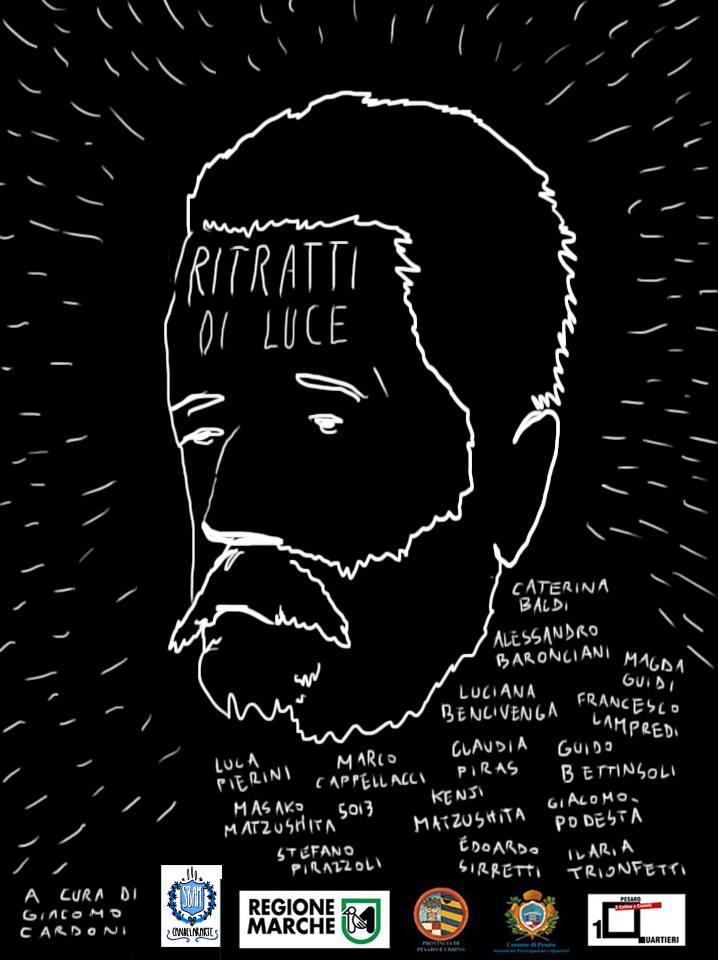 RITRATTI
DI LUCE
CATERINA
BALDI
ALESSANDRO
BARONCIANI
MAGDA
GUIDI
LUCIANA
BENCIVENGA
FRANCESCO
LAMPREDI
LUCA
PIERINI
MARCO
CAPPELLACCI
CLAUDIA
PIRAS
GUIDO
BETTINSOLI
MASAKO
MATZUSHITA
5013
KENJI
MATZUSHITA
GIACOMO
PODESTA
STEFANO
PIRAZZOLI
EDOARDO
SIRRETTI
ILARIA
TRIONFETTI
A CURA DI
GIACOMO
CARDONI
SBAM
CANDELARARTE
REGIONE
MARCHE
PROVINCIA DI
PESARO E URBINO
Comune di Pesaro
Assessorato Partecipazione e Quartieri
PESARO
5 Colline e Castelli
1 QUARTIERI